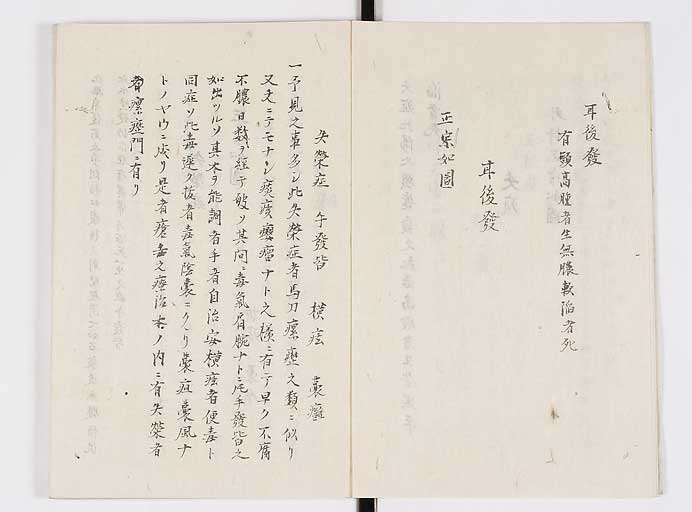 耳後發
有頭高腫者生無膿軟陥者死
正宗如圖
耳後發
失榮症 手發背 横痃 囊癰
一予見之事多シ此失榮症者馬刀瘰癧之類ニ似リ
又文ニテモナシ痰瘤癭瘤ナト之様ニ有テ早ク不腐
不膿日数ヲ経テ破ソ其間ニ毒氣肩腕ナトニ
如出ツルソ其本ヲ能調者手者自治安横痃者便毒ト
同症ソ此毒遅ク抜者毒氣陰囊ニクリ囊疽囊風ナ
トノヤウニ成リ是者瘡毒之療治本ノ内ニ有失榮者
者瘰癧門ニ有リ